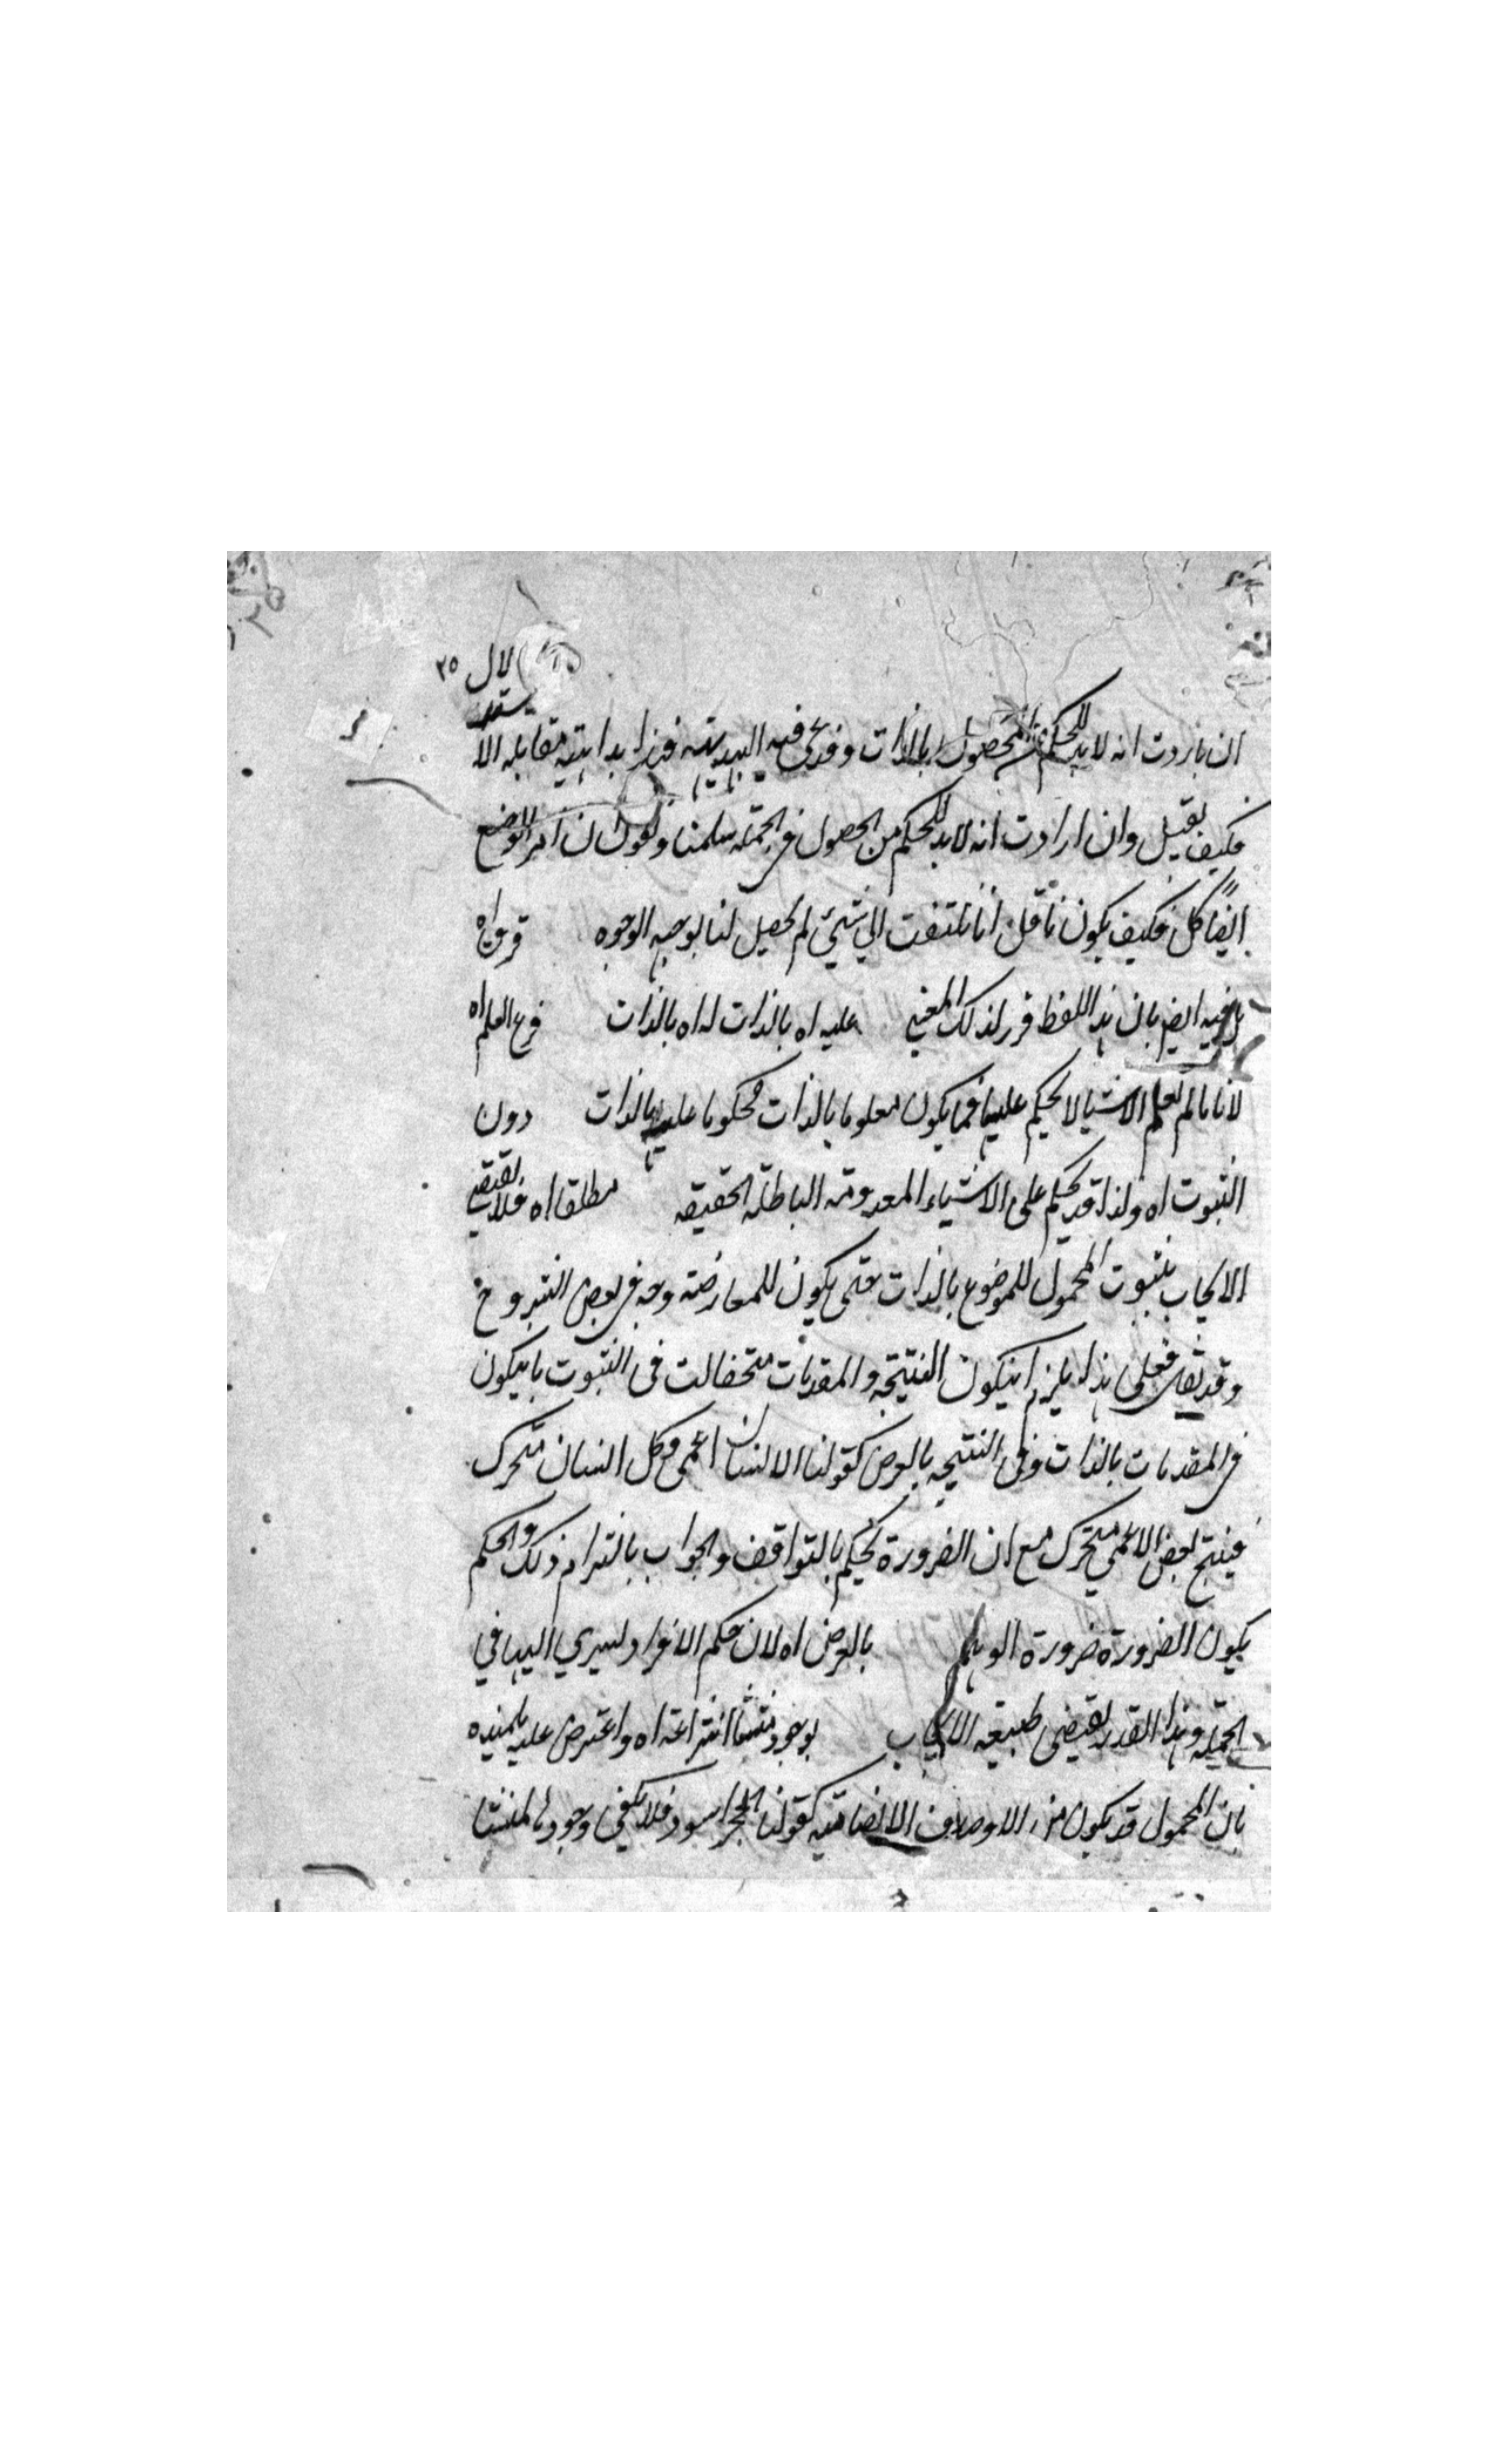 لال ٢٥
ان اردت انه لابد للحكم من الحصول بالذات وقد يحكى فيه البديهية فهذا بداهته مقابلة الا
فكيف يقبل وان ارادت انه لابد للحكم من الحصول فى الجملة سلمنا ونقول ان امر الوضع
ايضا كل فكيف يكون ناقل انا نلتفت الى شيئ لم يحصل لنا بوجه الوجوه
فيه ايض بان هذا اللفظ قرر لذلك المعنى عليه اه بالذات له اه بالذات فرع العلم اه
لانا ما لم نعلم الاشيا لا نحكم عليها فما يكون معلوما بالذات محكوما عليه بالذات دون
الثبوت اه ولذا قد يحكم على الاشياء المعدومة الباطلة الحقيقه مطلقا اه فلا يقتضى
الايجاب ثبوت المحمول للموضوع بالذات حتى يكون للمعارضة وجه فى بعض الشروح
وقد يقال فعلى هذا يلزم ان يكون النتيجه والمقدمات متخالفت فى الثبوت بان يكون
فى المقدمات بالذات وفى النتيجه بالعرض كقولنا الانسان اعمى وكل انسان متحرك
فينتج بعض الاعمى متحرك مع ان الضرورة يحكم بالتوافق والجواب بالتزام ذلك والحكم
يكون الضرورة ضرورة الوهم بالعرض اه لان حكم الافراد يسري اليها فى
الجملة وهذا القدر يقتضى طبيعه الايجاب بوجود منشأ انتزاعه اه واعترض عليه تلميذه
بان المحمول قد يكون من الاوصاف الانضامية كقولنا الحجر اسود فلا يكفى وجود المنشا